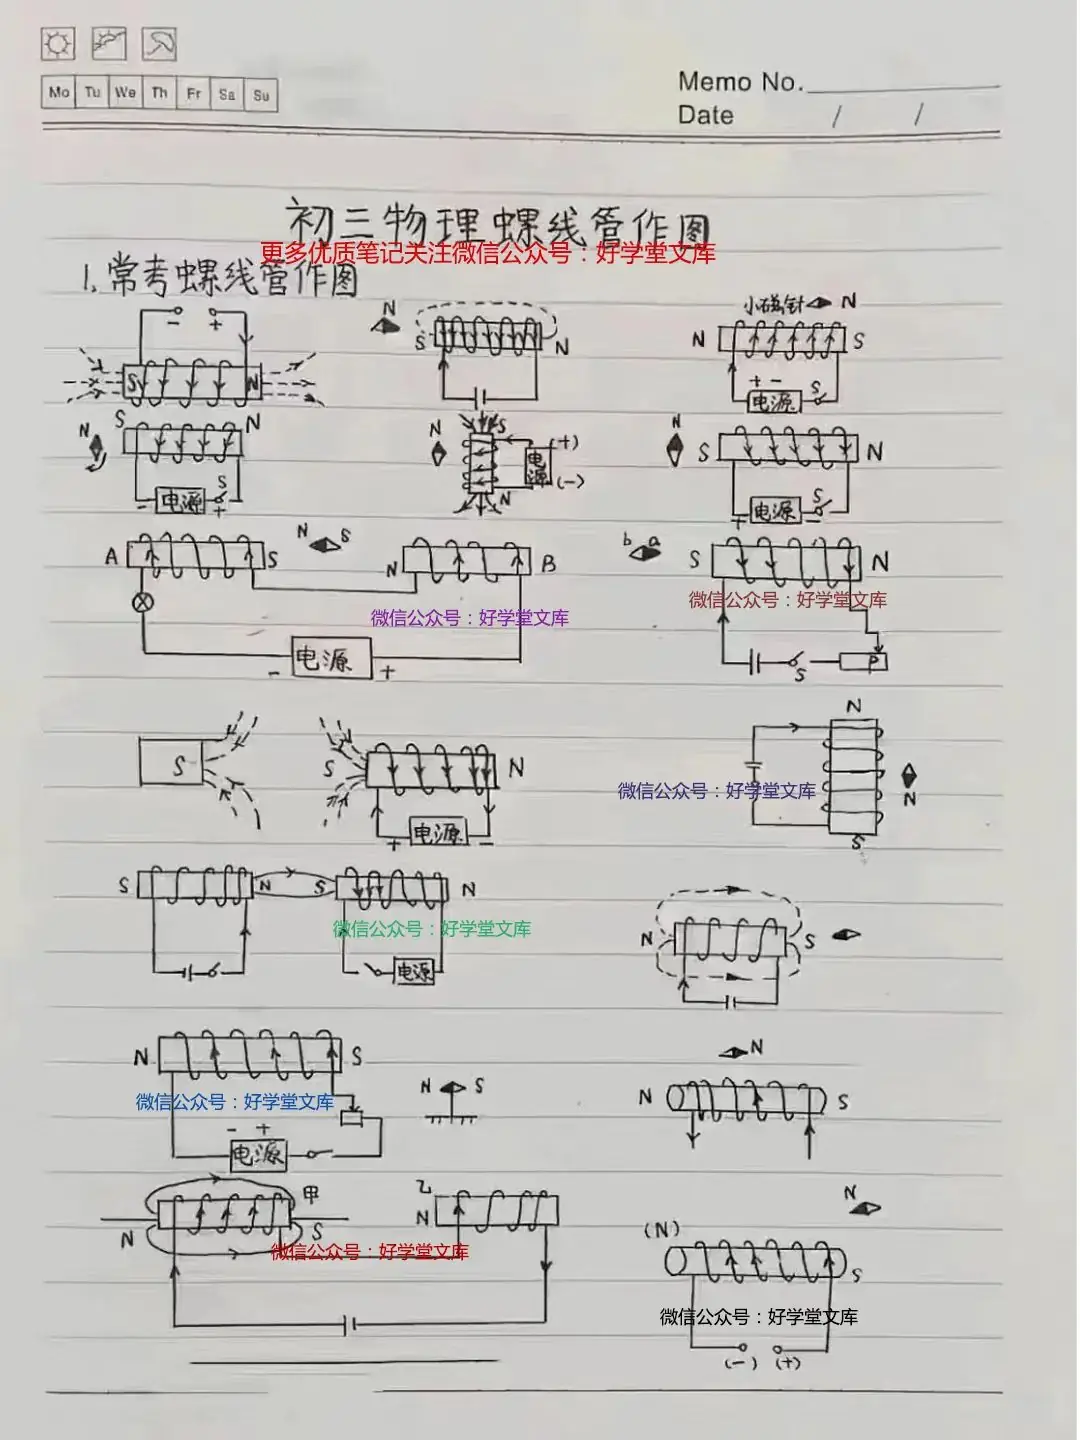 Mo Tu We Th Fr Sa Su
Memo No.
Date / /
初三物理螺线管作图
更多优质笔记关注微信公众号：好学堂文库
1.常考螺线管作图
- +
S N
N
S N
小磁针 N
N S
+ - S
电源
S N
N
S
- 电源 +
N
S
电源
(+)
(-)
N
N
S N
S
+ 电源 -
A S
N S
N B
微信公众号：好学堂文库
- 电源 +
b a
S N
微信公众号：好学堂文库
S P
S
S N
+ 电源 -
N
微信公众号：好学堂文库
N
S
S N
S N
微信公众号：好学堂文库
电源
N S
N S
微信公众号：好学堂文库
- +
电源
N S
N
N S
甲
N S
乙
N
微信公众号：好学堂文库
N
(N)
S
微信公众号：好学堂文库
(-) (+)